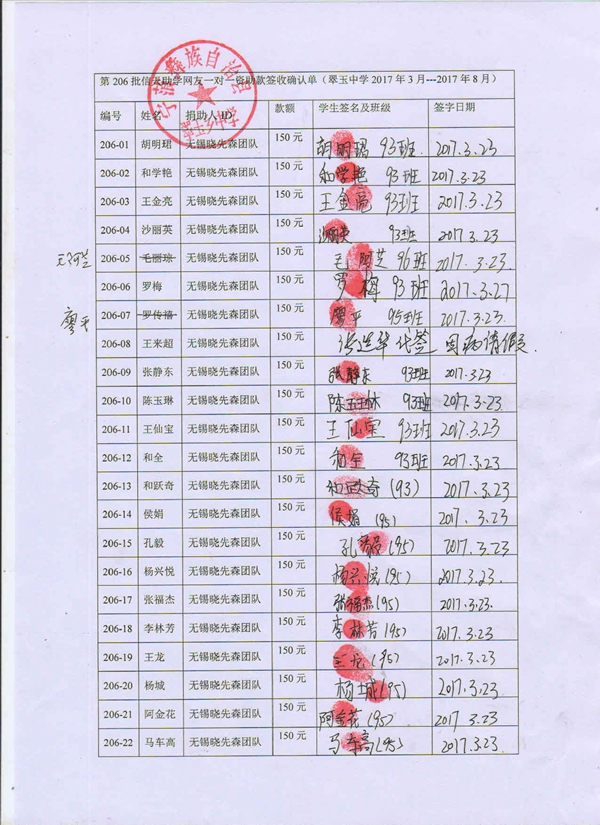 第 206 批信天助学网友一对一资助款签收确认单（翠玉中学 2017 年 3 月---2017 年 8 月）
编号 姓名 捐助人 ID 款额 学生签名及班级 签字日期
206-01 胡明珺 无锡晓先森团队 150 元 胡明珺 93班 2017.3.23
206-02 和学艳 无锡晓先森团队 150 元 和学艳 93班 2017.3.23
206-03 王金亮 无锡晓先森团队 150 元 王金亮 93班 2017.3.23
206-04 沙丽英 无锡晓先森团队 150 元 沙丽英 93班 2017.3.23
206-05 毛丽琼 无锡晓先森团队 150 元 毛阿芝 96班 2017.3.23
206-06 罗梅 无锡晓先森团队 150 元 罗梅 93班 2017.3.27
廖平 206-07 罗传禧 无锡晓先森团队 150 元 廖平 95班 2017.3.23
206-08 王来超 无锡晓先森团队 150 元 张连华代签 因病请假.
206-09 张静东 无锡晓先森团队 150 元 张静东 93班 2017.3.23
206-10 陈玉琳 无锡晓先森团队 150 元 陈玉琳 93班 2017.3.23
206-11 王仙宝 无锡晓先森团队 150 元 王仙宝 93班 2017.3.23
206-12 和全 无锡晓先森团队 150 元 和全 93班 2017.3.23
206-13 和跃奇 无锡晓先森团队 150 元 和跃奇 (93) 2017.3.23
206-14 侯娟 无锡晓先森团队 150 元 侯娟 (95) 2017.3.23
206-15 孔毅 无锡晓先森团队 150 元 孔毅 (95) 2017.3.23
206-16 杨兴悦 无锡晓先森团队 150 元 杨兴悦 (95) 2017.3.23.
206-17 张福杰 无锡晓先森团队 150 元 张福杰 (95) 2017.3.23.
206-18 李林芳 无锡晓先森团队 150 元 李林芳 (95) 2017.3.23
206-19 王龙 无锡晓先森团队 150 元 王龙 (95) 2017.3.23
206-20 杨城 无锡晓先森团队 150 元 杨城 (95) 2017.3.23
206-21 阿金花 无锡晓先森团队 150 元 阿金花 (95) 2017.3.23
206-22 马车高 无锡晓先森团队 150 元 马车高 (95) 2017.3.23